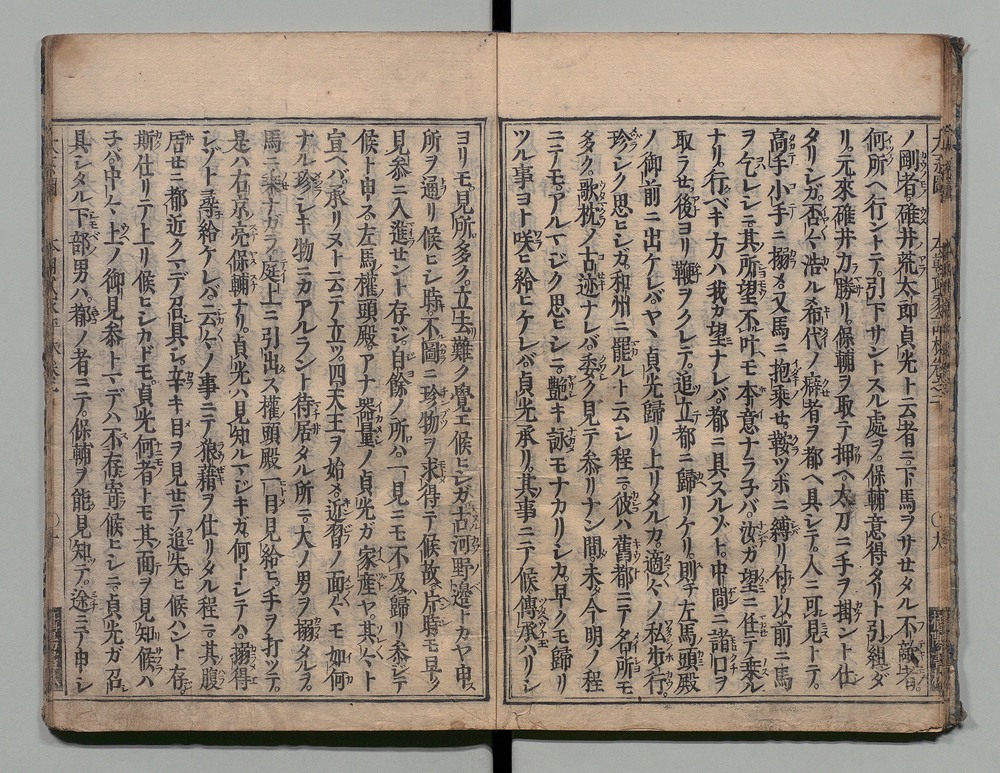 ノ剛者。碓井荒太郎貞光ト云者ニ。下馬ヲサセタル不敵者。
何所ヘ行ントテ。引下サントスル處ヲ。保輔意得タリト引組ダ
リ。元來碓井力勝リ。保輔ヲ取テ押ヘ。太刀ニ手ヲ掛ント仕
タリシガ。否々浩ル希代ノ癖者ヲ都ヘ具シテ。人ニ可見トテ。
高手小手ニ搦メ。又馬ニ抱乘セ。鞍ツボニ縛リ付。以前ニ馬
ヲ乞レシニ。其所望不叶モ本意ナラ子バ。汝ガ望ニ任テ乘ル
ナリ。行ベキ方ハ我カ望ナレバ。都ニ具スルゾト。中間ニ諸口ヲ
取ラセ。後ヨリ鞭ヲクレテ。追立都ニ歸リケリ。則チ左馬頭殿
ノ御前ニ出ケレバ。ヤヽ貞光歸リ上リタルカ。適々ノ私歩行。
珍シク思ヒシガ。和州ニ罷ルト云シ程ニ。彼ハ舊都ニテ名所モ
多ク。歌枕ノ古迹ナレバ。委ク見テ參リナン間。未今明ノ程
ニテモ。アルマジク思ヒシニ。艶キ詠モナカリシカ。早クモ歸リ
ツル事ヨト咲ヒ給ヒケレバ。貞光承リ。其事ニテ候。傳承ハリシ
ヨリモ。見所多ク。立去難ク覺エ候ヒシガ。古河野邊トカヤ申
所ヲ通リ候ヒシ時。不圖ニ珍物ヲ求得テ候故。片時モ早ク
見參ニ入進セント存ジ。自餘ノ所ハ一見ニモ不及歸リ參ジテ
候ト申ス。左馬權頭殿。アナ器量ノ貞光ガ家産ヤ。其々ト
宣ヘバ。承リヌト云テ立ツ。四天王ヲ始メ。近習ノ面々モ如何
ナル珍シキ物ニカアルラント待居タル所ニ。大ノ男ヲ搦タルヲ。
馬ニ乘ナガラ。庭上ニ引出ス。權頭殿一目見給ヒ。手ヲ打ツテ。
是ハ右京ノ亮保輔ナリ。貞光ハ見知ルマジキガ。何トシテハ。搦得
シゾト尋給ケレバ。云々ノ事ニテ狼藉ヲ仕リタル程ニ。其腹
居セニ都近クマデ召具シ。辛キ目ヲ見セテ追失ヒ候ハント存。
斯仕リテ上リ候ヒシカドモ。貞光何者トモ其面ヲ見知候ハ
子バ。中々上ノ御見參トマデハ不存寄候ヒシニ。貞光ガ召
具シタル下部男ハ。都ノ者ニテ。保輔ヲ能見知テ。途ニテ申シ